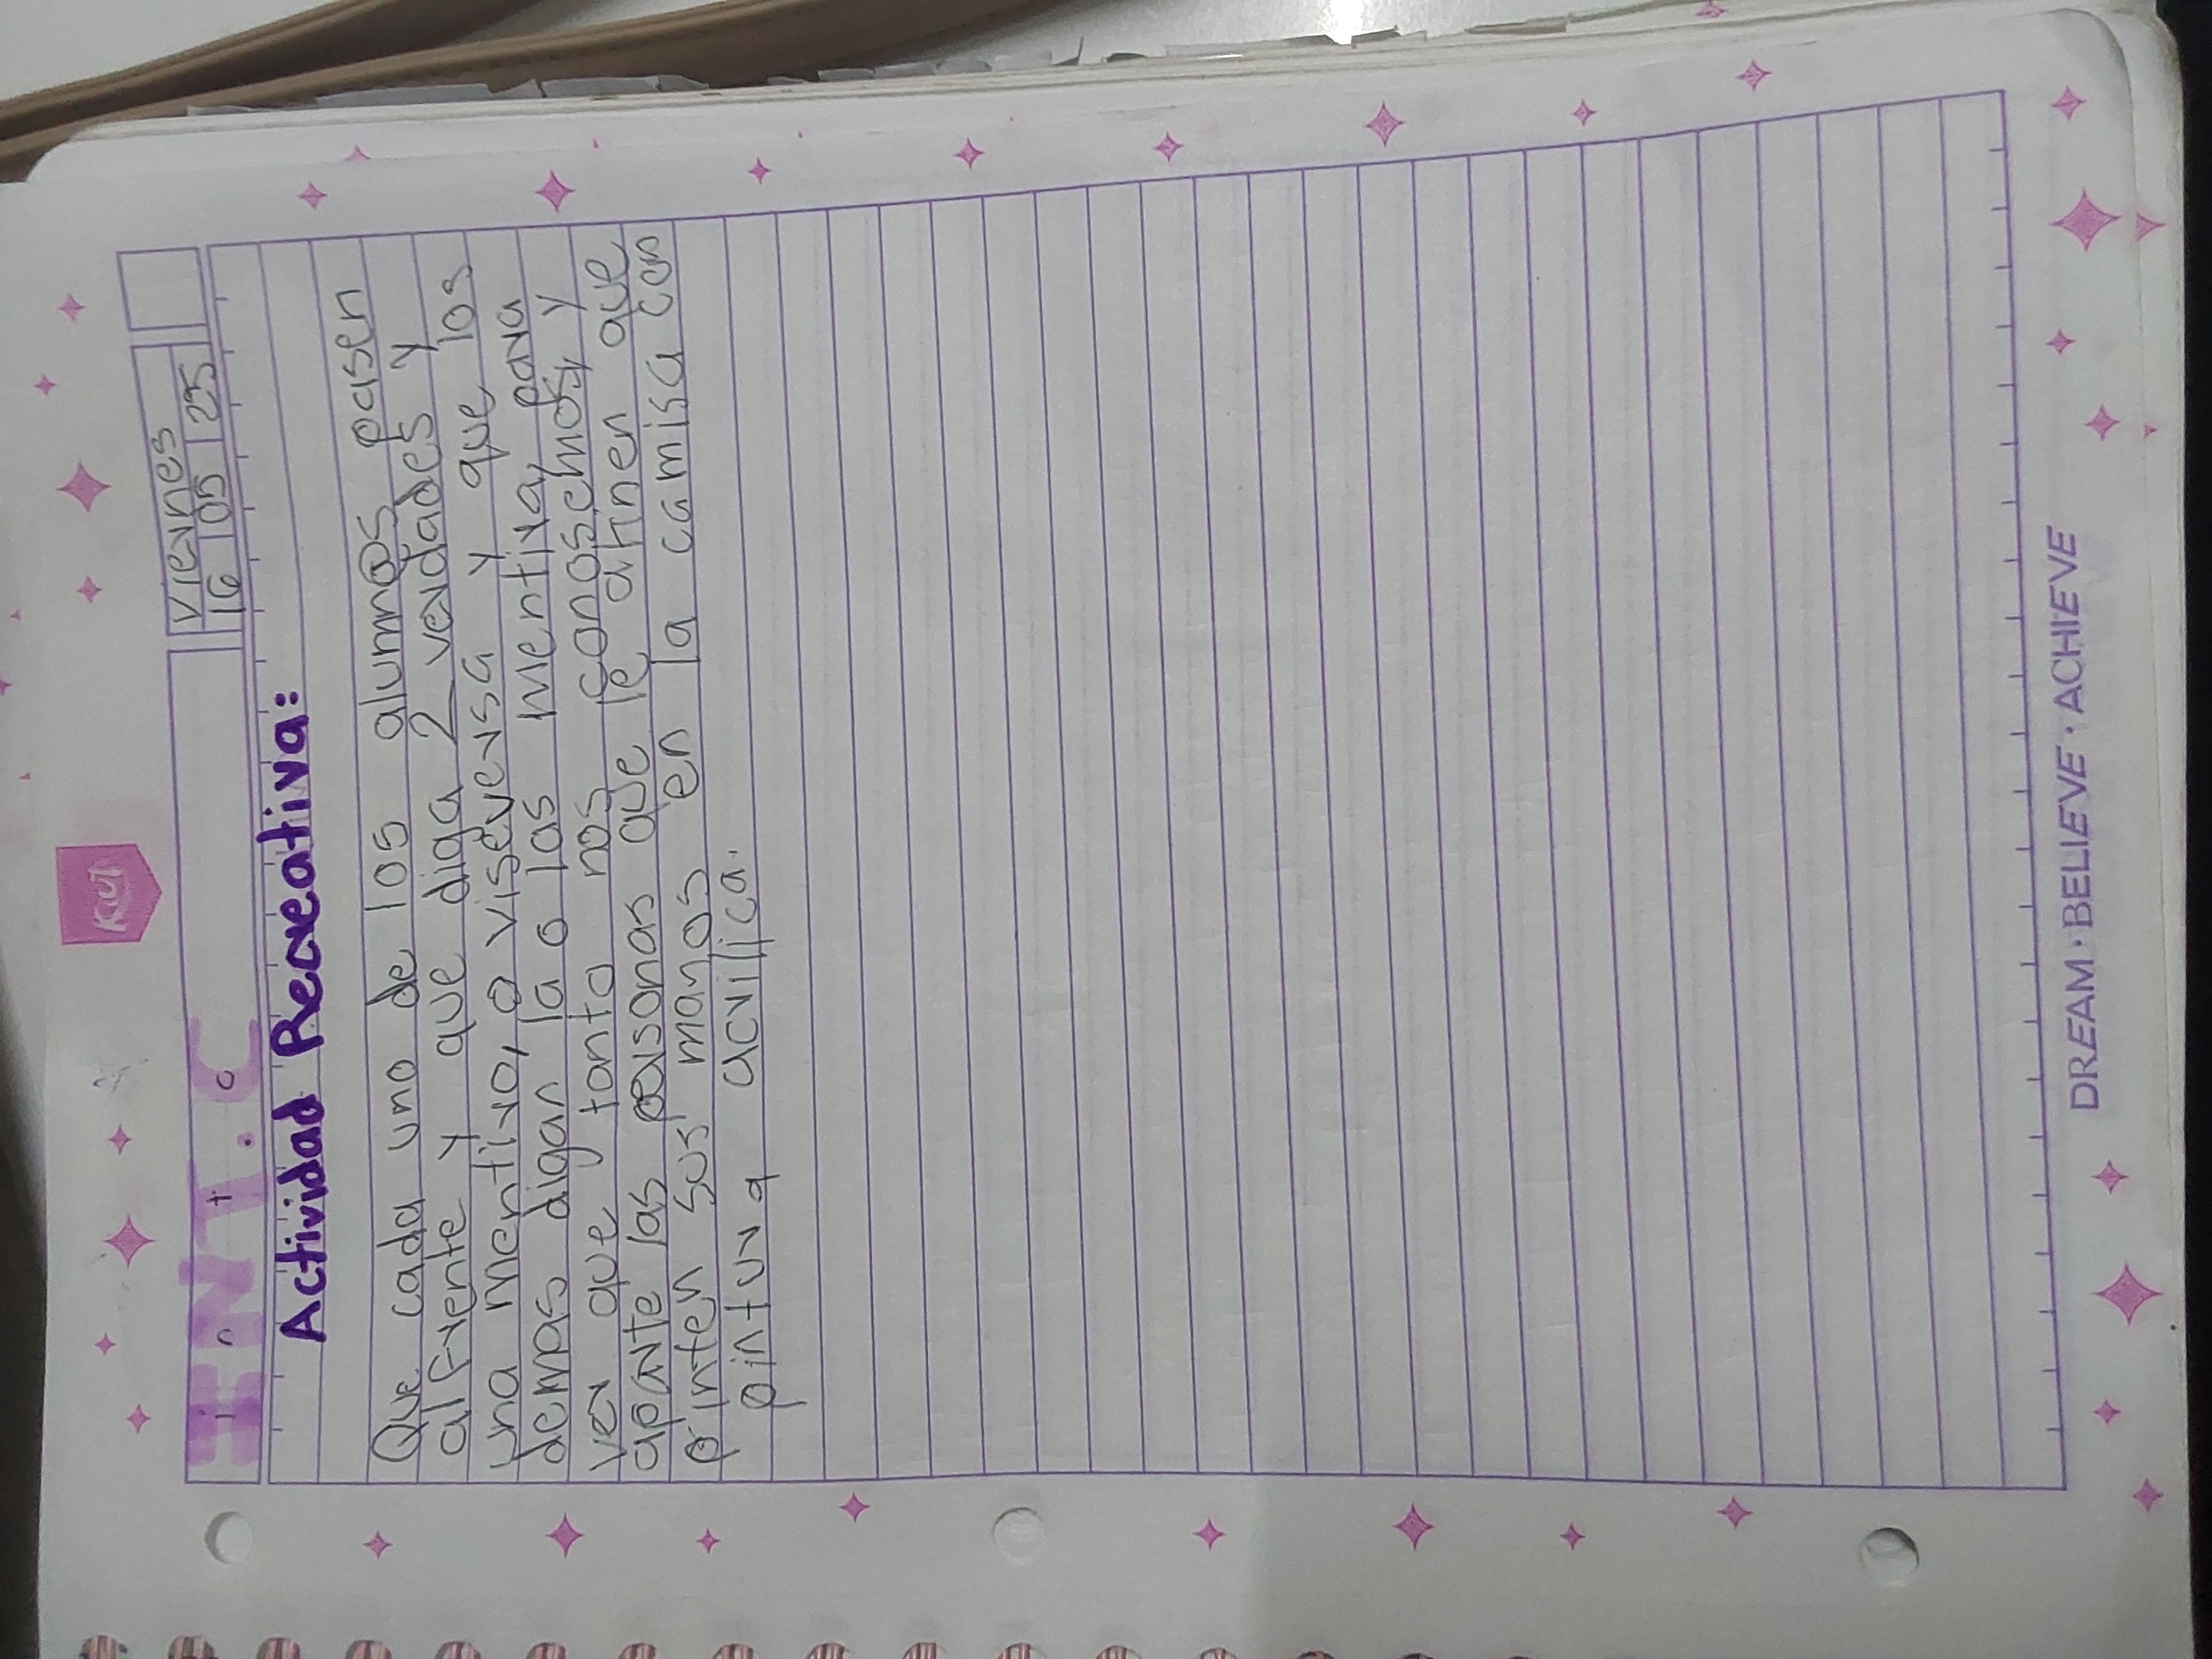 Kut
INT.C
Viernes
16 | 05 | 25
Actividad Recreativa:
Que cada uno de los alumn@s pasen
alfrente y que diga 2 verdades y
una mentira, o viseversa y que los
demas digan la o las mentira, para
ver que tanto nos conoscmos, y
aparte las personas que le atinen que
pinten sus manos en la camisa con
pintura acrilica.
DREAM · BELIEVE · ACHIEVE